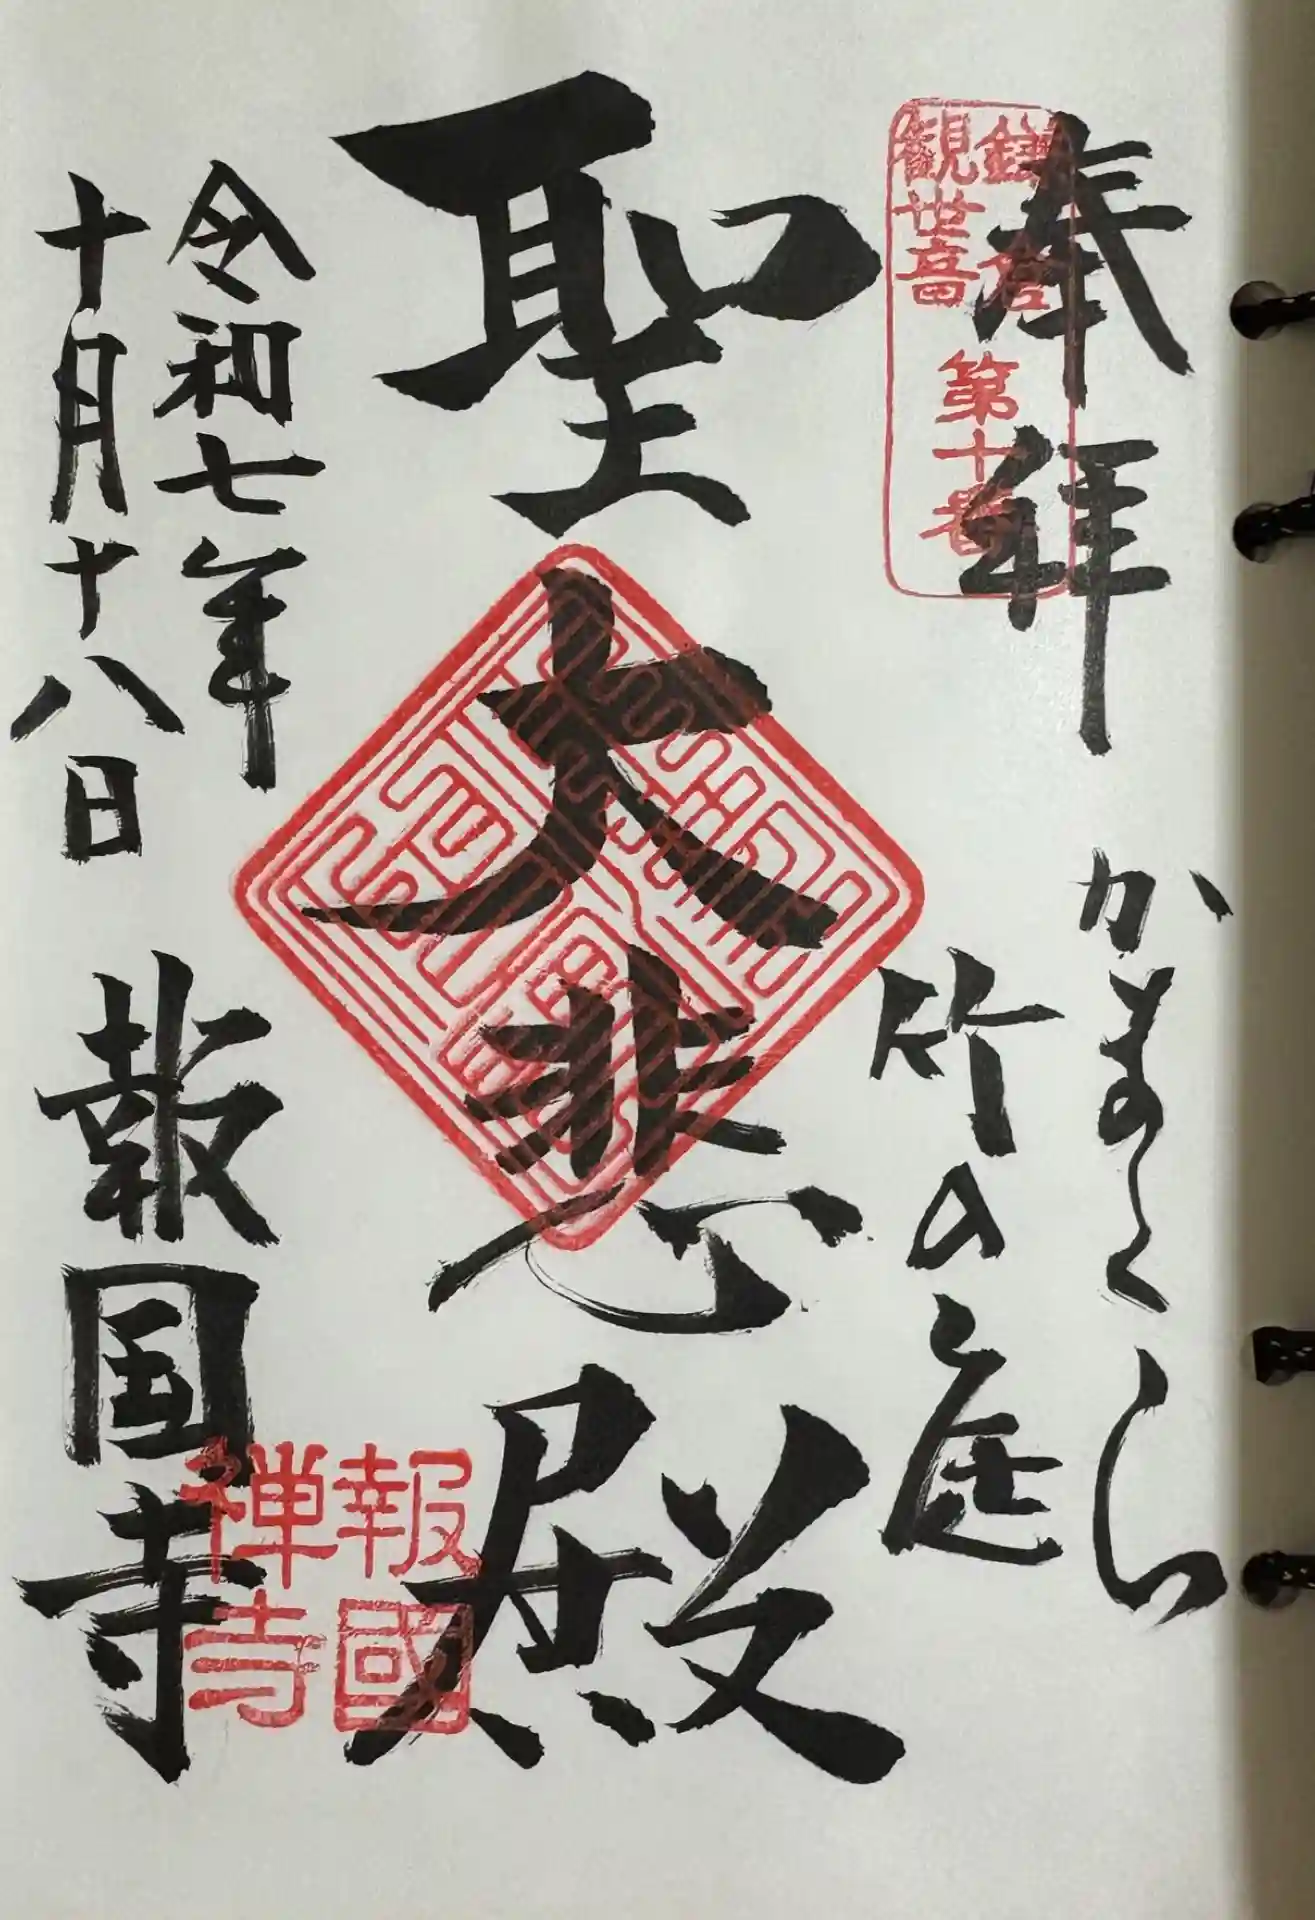 奉拝
鎌倉
観世音
第十番
かまくら
竹の庭
聖大悲殿
令和七年
十月十八日
報国寺
報國
禅寺